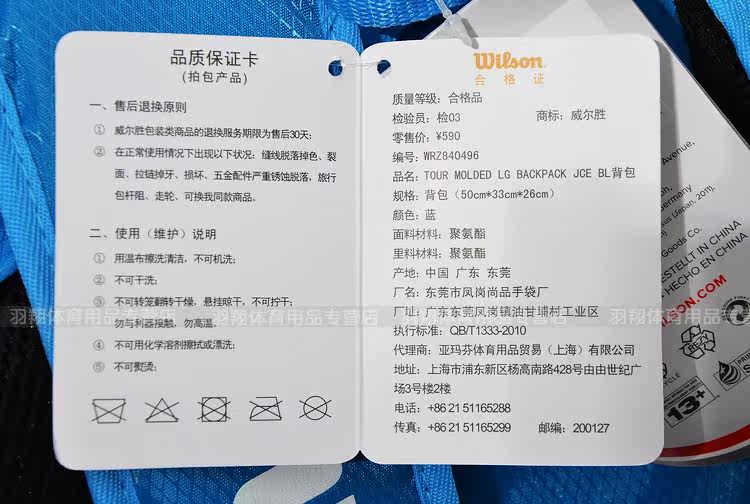 品质保证卡
(拍包产品)
一、售后退换原则
① 威尔胜包装类商品的退换服务期限为售后30天；
② 在正常使用情况下出现以下状况：缝线脱落掉色、裂
面、拉链掉牙、损坏、五金配件严重锈蚀脱落，旅行
包杆阻、走轮、可换我同款商品。
二、使用（维护）说明
① 用温布擦洗清洁，不可机洗；
② 不可干洗；
③ 不可转笼翻转干燥，悬挂晾干，不可拧干；
勿与利器接触，勿高温。
④ 不可用化学溶剂擦拭或漂洗；
⑤ 不可熨烫；
Wilson.
合格证
质量等级：合格品
检验员：检03 商标：威尔胜
零售价：¥590
编号：WRZ840496
品名：TOUR MOLDED LG BACKPACK JCE BL背包
规格：背包（50cm*33cm*26cm）
颜色：蓝
面料材料：聚氨酯
里料材料：聚氨酯
产地：中国 广东 东莞
厂名：东莞市凤岗尚品手袋厂
厂址：广东东莞凤岗镇油甘埔村工业区
执行标准：QB/T1333-2010
代理商：亚玛芬体育用品贸易（上海）有限公司
地址：上海市浦东新区杨高南路428号由由世纪广
场3号楼2楼
电话：+86 21 51165288
传真：+86 21 51165299 邮编：200127
羽翔体育用品专营店 羽翔体育用品专营店 羽翔体育用品专营店
Avenue,
Germany
(Japan, 2011),
Goods Co.
ESTELLT IN CHINA
HECHO EN CHINA
SON.COM
13+